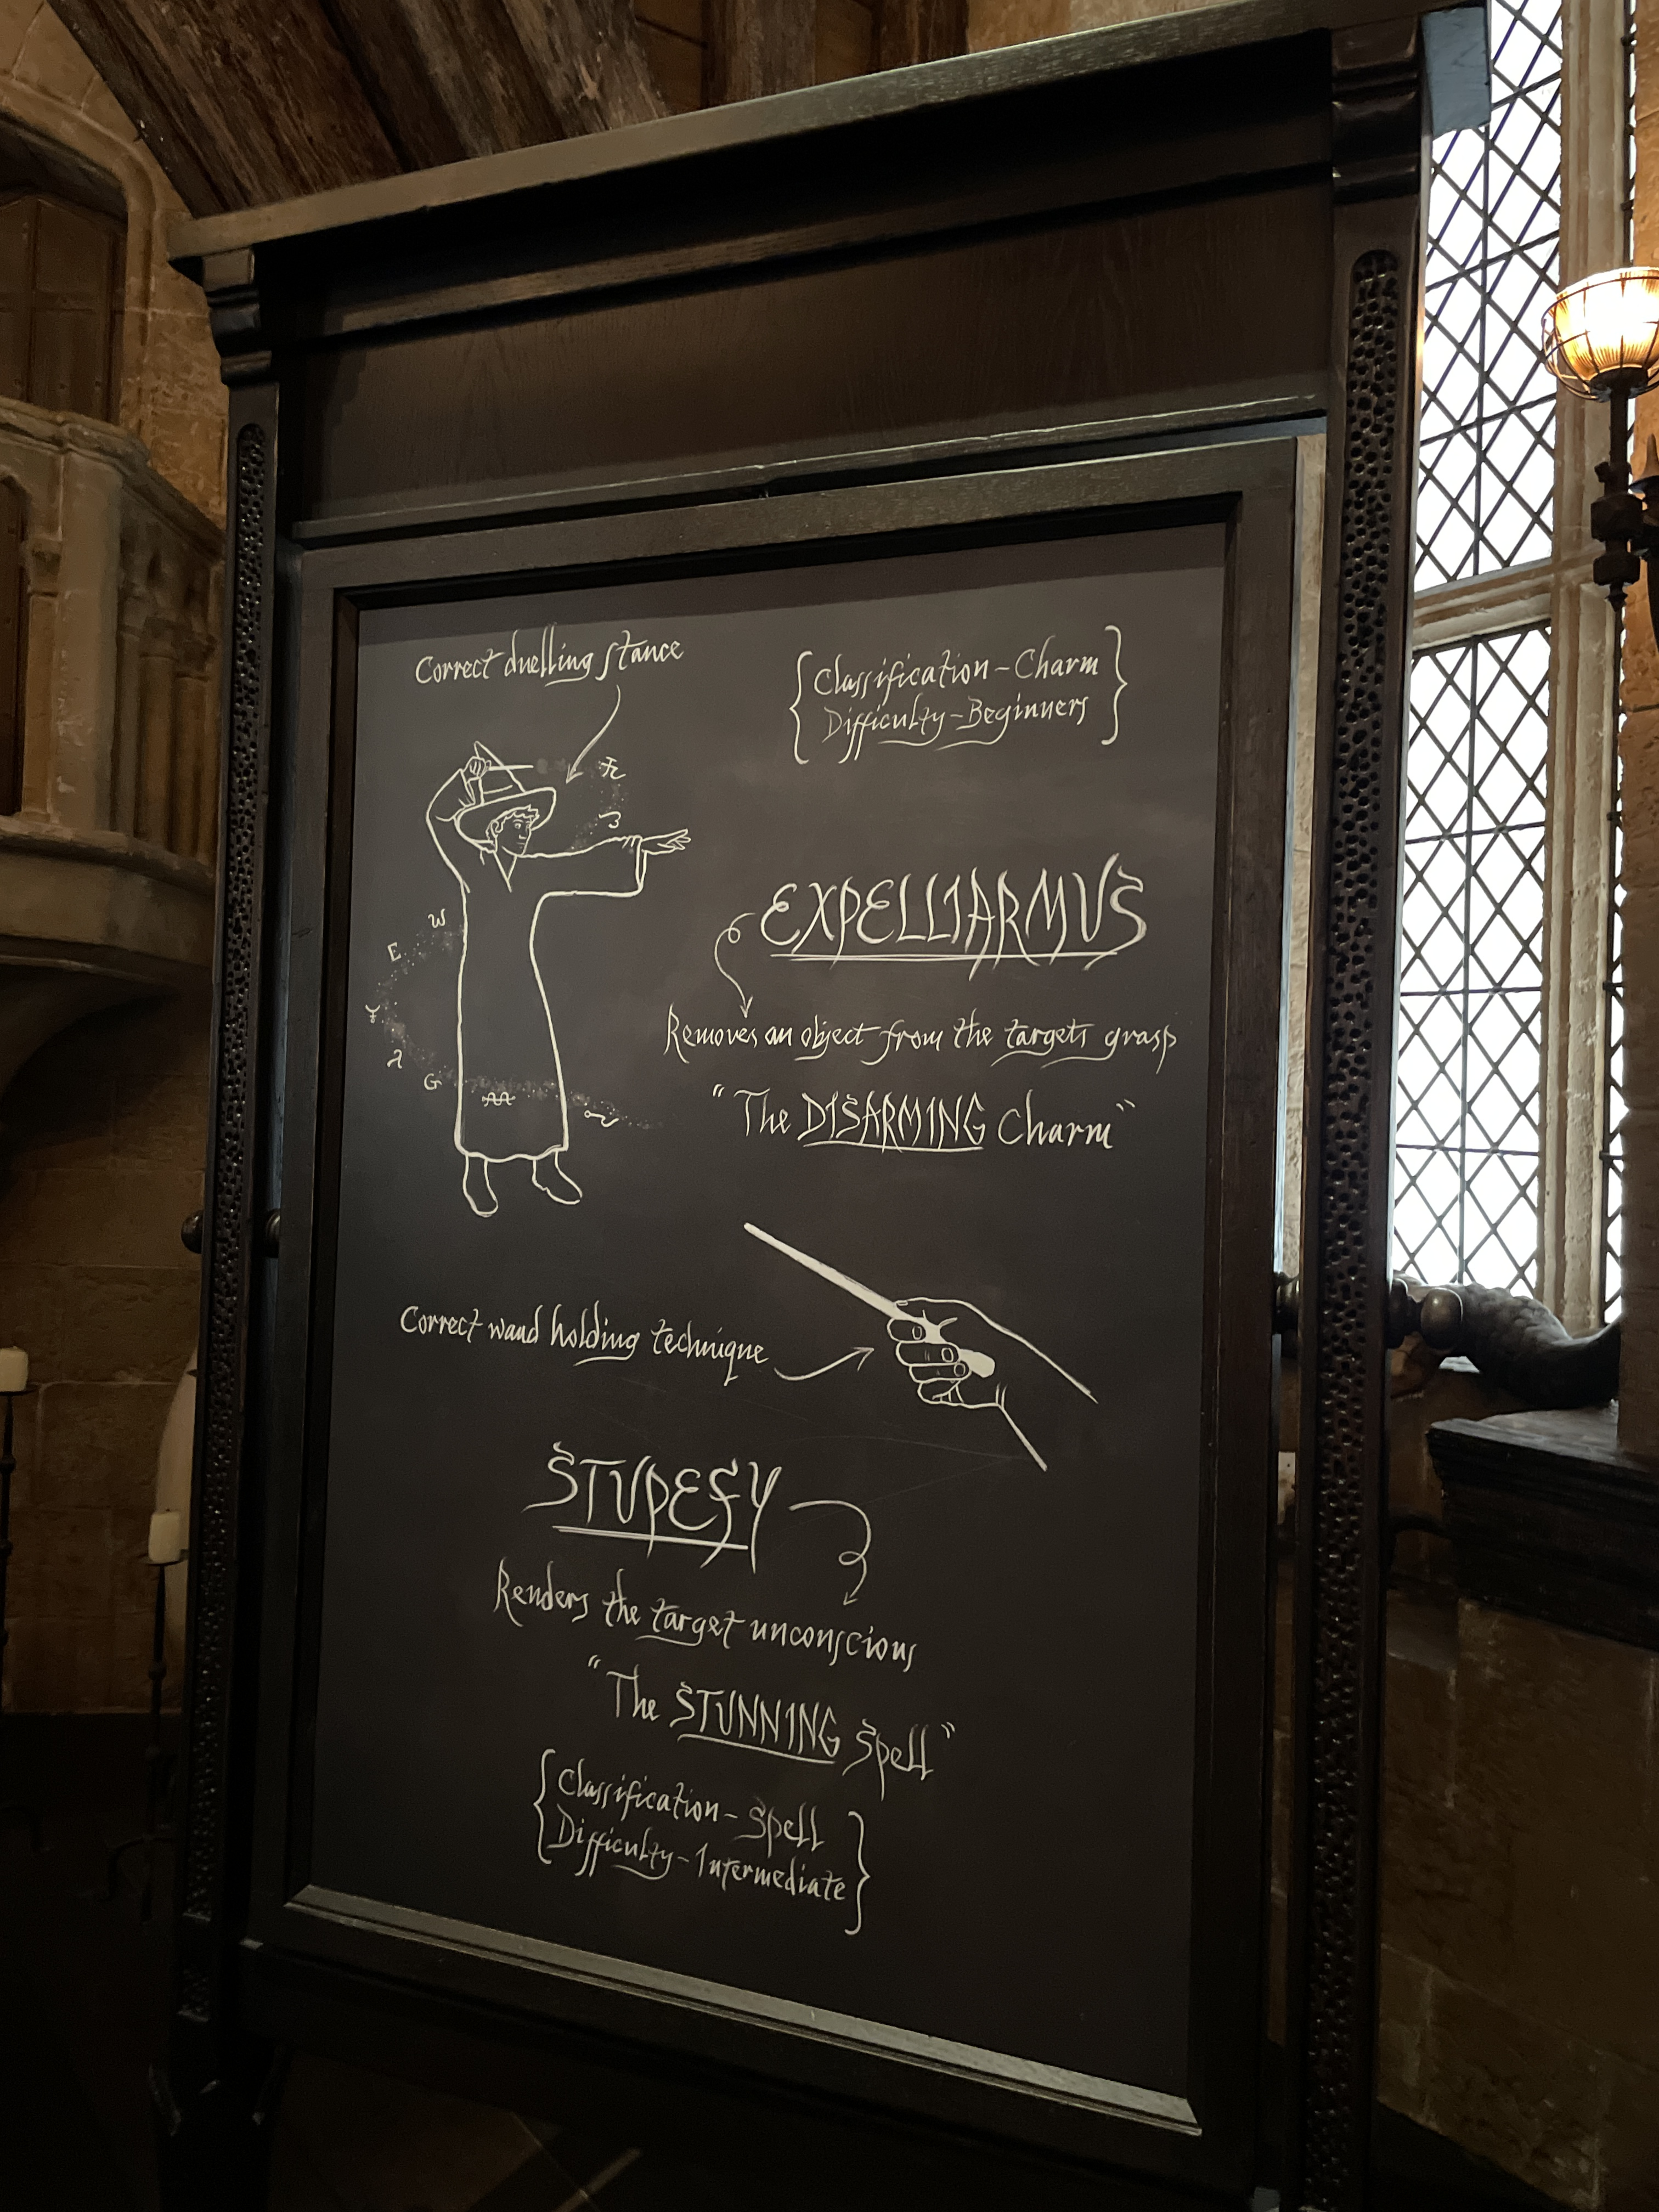 Correct duelling stance
{Classification - Charm
Difficulty - Beginners}
EXPELLIARMUS
Removes an object from the targets grasp
"The DISARMING Charm"
W
E
G
Correct wand holding technique
STUPEFY
Renders the target unconscious
"The STUNNING Spell"
{Classification - Spell
Difficulty - Intermediate}